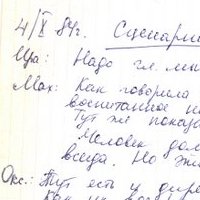 4/X 84г. Сценарий
Ира: Надо гл. мы
Мах: Как говорила
воспитание не
Тут же показа
Человек дол
всегда. Но
Окс.: Тут есть и дире